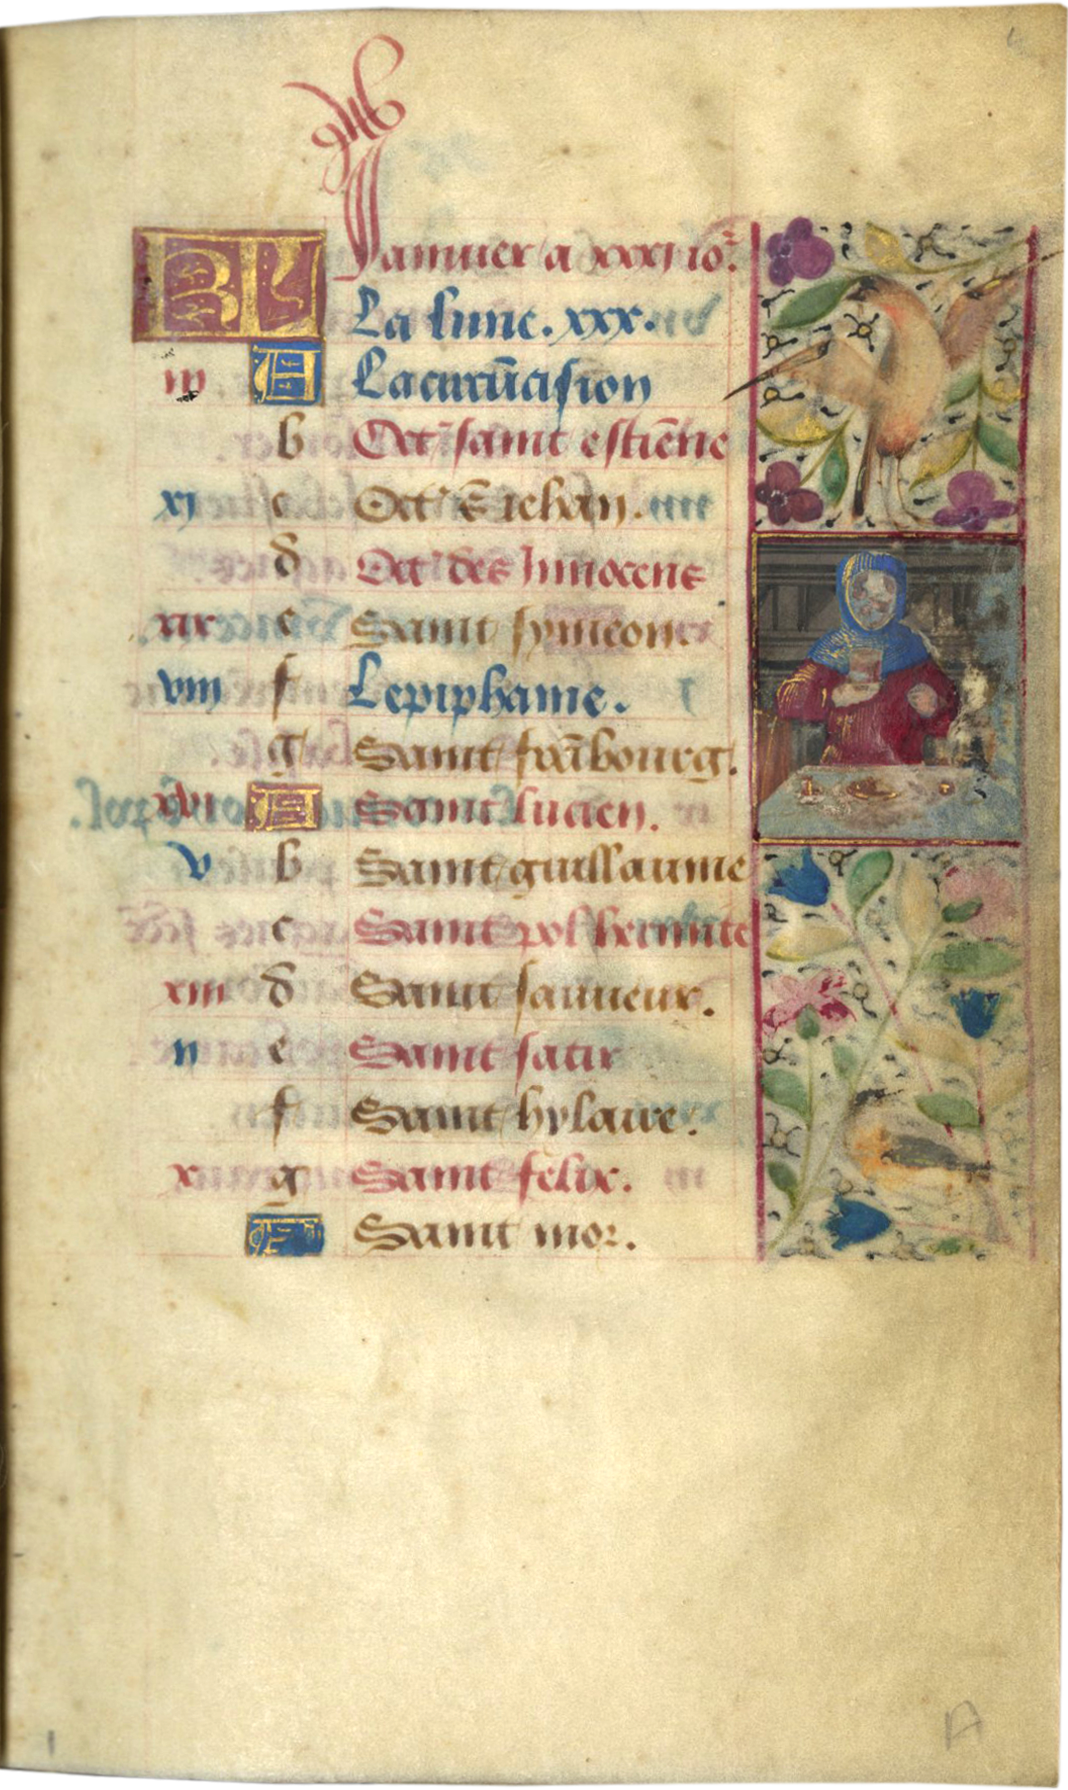 KL Januier a xxxi io².
La lune. xxx.
iij A La circu̅cision
b Oct' saint estie̅ne
xj c Oct' S̅ iehan.
d Oct' des Innocens
xix e Saint symeon.
viij f Lepiphanie.
g Saint fra̅bourg.
xvi A Saint lucien.
v b Saint guillaume
c Saint pol hermite
xiii d Saint sauueur.
ii e Saint satir
f Saint hylaire.
x g Saint felix.
A Saint mor.
1
A